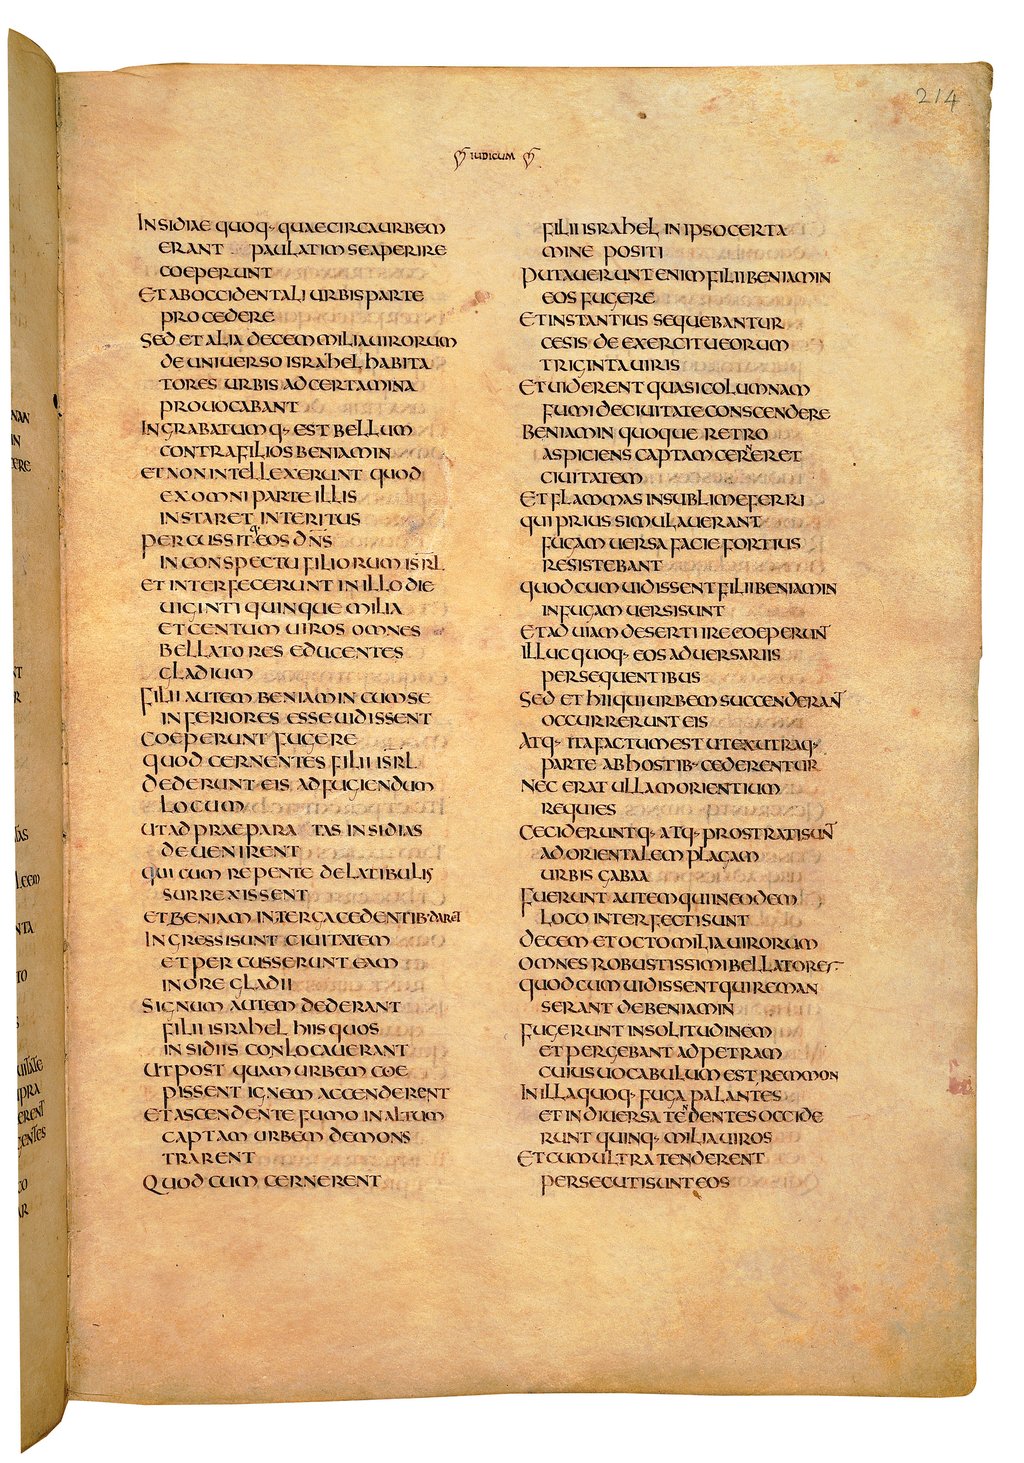 214
IUDICUM
INSIDIAE QUOQ· QUAE CIRCA URBEM
ERANT PAULATIM SE APERIRE
COEPERUNT
ET AB OCCIDENTALI URBIS PARTE
PROCEDERE
SED ET ALIA DECEM MILIA UIRORUM
DE UNIUERSO ISRAHEL HABITA
TORES URBIS AD CERTAMINA
PROUOCABANT
INGRABATUMQ· EST BELLUM
CONTRA FILIOS BENIAMIN
ET NON INTELLEXERUNT QUOD
EX OMNI PARTE ILLIS
INSTARET INTERITUS
PERCUSSITQ· EOS DN̄S
IN CONSPECTU FILIORUM ISRL̄
ET INTERFECERUNT IN ILLO DIE
UIGINTI QUINQUE MILIA
ET CENTUM UIROS OMNES
BELLATORES EDUCENTES
GLADIUM
FILII AUTEM BENIAMIN CUM SE
INFERIORES ESSE UIDISSENT
COEPERUNT FUGERE
QUOD CERNENTES FILII ISRL̄
DEDERUNT EIS AD FUGIENDUM
LOCUM
UT AD PRAEPARA TAS INSIDIAS
DEUENIRENT
QUI CUM REPENTE DE LATIBULIS
SURREXISSENT
ET BENIAMIN TERGA CEDENTIB· DARET
INGRESSI SUNT CIUITATEM
ET PERCUSSERUNT EAM
IN ORE GLADII
SIGNUM AUTEM DEDERANT
FILII ISRAHEL HIIS QUOS
IN SIDIIS CONLOCAUERANT
UT POST QUAM URBEM COE
PISSENT IGNEM ACCENDERENT
ET ASCENDENTE FUMO IN ALTUM
CAPTAM URBEM DEMONS
TRARENT
QUOD CUM CERNERENT
FILII ISRAHEL IN IPSO CERTA
MINE POSITI
PUTAUERUNT ENIM FILII BENIAMIN
EOS FUGERE
ET INSTANTIUS SEQUEBANTUR
CESIS DE EXERCITU EORUM
TRIGINTA UIRIS
ET UIDERENT QUASI COLUMNAM
FUMI DE CIUITATE CONSCENDERE
BENIAMIN QUOQUE RETRO
ASPICIENS CAPTAM CERNERET
CIUITATEM
ET FLAMMAS IN SUBLIME FERRI
QUI PRIUS SIMULAUERANT
FUGAM UERSA FACIE FORTIUS
RESISTEBANT
QUOD CUM UIDISSENT FILII BENIAMIN
IN FUGAM UERSI SUNT
ET AD UIAM DESERTI IRE COEPERUNT
ILLUC QUOQ· EOS ADUERSARIIS
PERSEQUENTIBUS
SED ET HII QUI URBEM SUCCENDERANT
OCCURRERUNT EIS
ATQ· ITA FACTUM EST UT EX UTRAQ·
PARTE AB HOSTIB· CEDERENTUR
NEC ERAT ULLA MORIENTIUM
REQUIES
CECIDERUNTQ· ATQ· PROSTRATI SUNT
AD ORIENTALEM PLAGAM
URBIS GABAA
FUERUNT AUTEM QUI IN EODEM
LOCO INTERFECTI SUNT
DECEM ET OCTO MILIA UIRORUM
OMNES ROBUSTISSIMI BELLATORES
QUOD CUM UIDISSENT QUI REMAN
SERANT DE BENIAMIN
FUGERUNT IN SOLITUDINEM
ET PERGEBANT AD PETRAM
CUIUS UOCABULUM EST REMMON
IN ILLA QUOQ· FUGA PALANTES
ET IN DIUERSA TENDENTES OCCIDE
RUNT QUINQ· MILIA UIROS
ET CUM ULTRA TENDERENT
PERSECUTI SUNT EOS